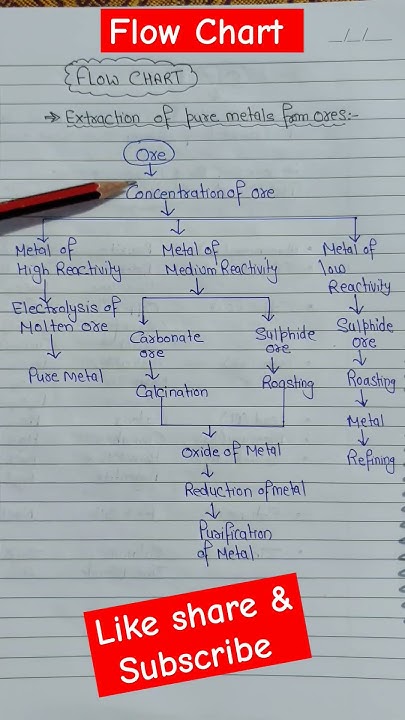 Flow Chart
_/_/__
FLOW CHART
→ Extraction of pure metals from ores:-
Ore
Concentration of ore
Metal of
High Reactivity
Electrolysis of
Molten ore
Pure Metal
Metal of
Medium Reactivity
Carbonate
ore
Calcination
Sulphide
ore
Roasting
Oxide of Metal
Reduction of metal
Purification
of Metal.
Metal of
low
Reactivity
Sulphide
ore
Roasting
Metal
Refining
Like share &
Subscribe